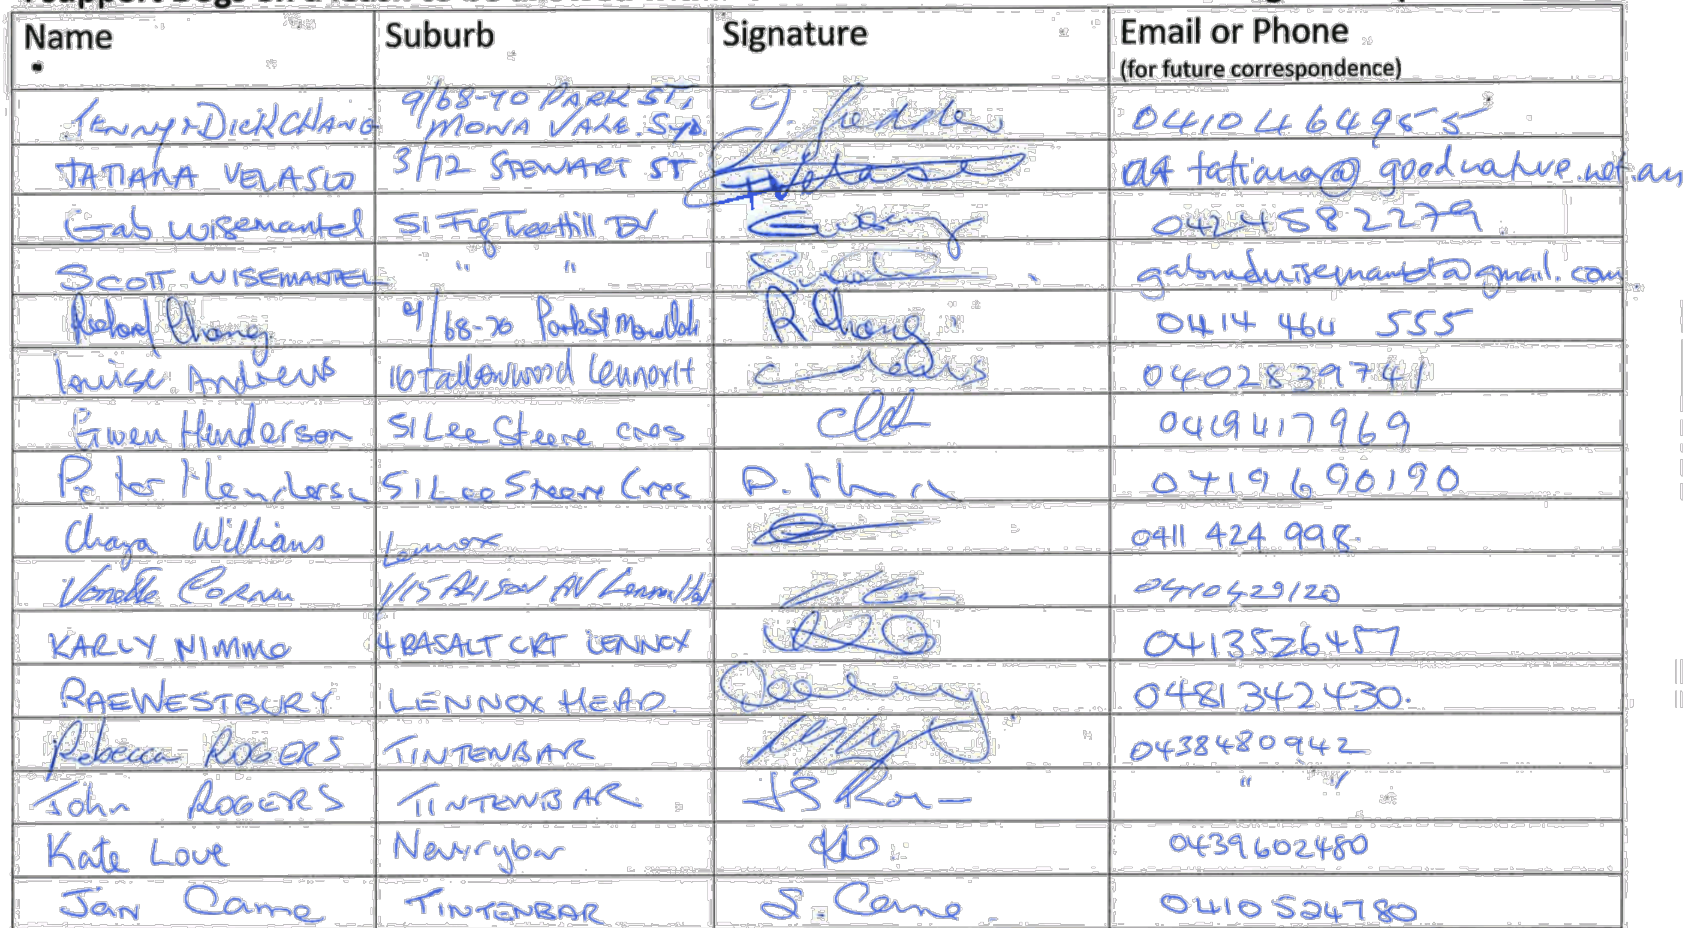 Name Suburb Signature Email or Phone
(for future correspondence)
9/68-70 PARK ST,
JENNY & DICK CHANG MONA VALE. SYD. 0410464955
TATIANA VELASCO 3/72 STEWART ST tatiana@goodnature.net.au
Gab Wisemantel 51 Fig Tree Hill Dr 0424582279
SCOTT WISEMANTEL " " @gmail.com
Richard Chang 9/68-70 Park St R Chang 0414 464 555
Louise Andrews 16 Tallowwood Lennox H 0402839741
Gwen Henderson 51 Lee Steere Cres 0419417969
Peter Henderson 51 Lee Steere Cres 0419690190
Chaya Williams Lennox 0411 424 998
Vonette Cornu 1/15 ALISON AV Lennox Hd 0410429120
KARLY NIMMO 4 BASALT CRT LENNOX 0413526457
RAE WESTBURY LENNOX HEAD. 0481342430.
Rebecca ROGERS TINTENBAR 0438480942
John ROGERS TINTENBAR " "
Kate Love Newrybar 0439602480
Jan Carne TINTENBAR J. Carne 0410524780